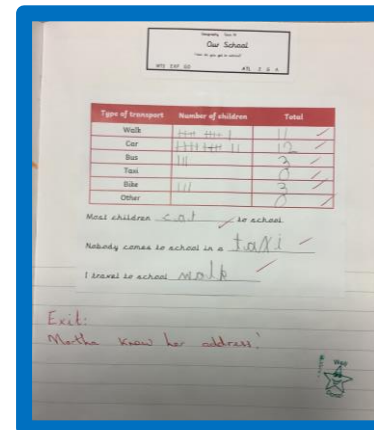 Our School
How do you get to school?
Type of transport Number of children Total
Walk 11
Car 12
Bus 3
Taxi 0
Bike 3
Other 0
Most children cat to school.
Nobody comes to school in a taxi
I travel to school walk
Exit:
Martha know her address!